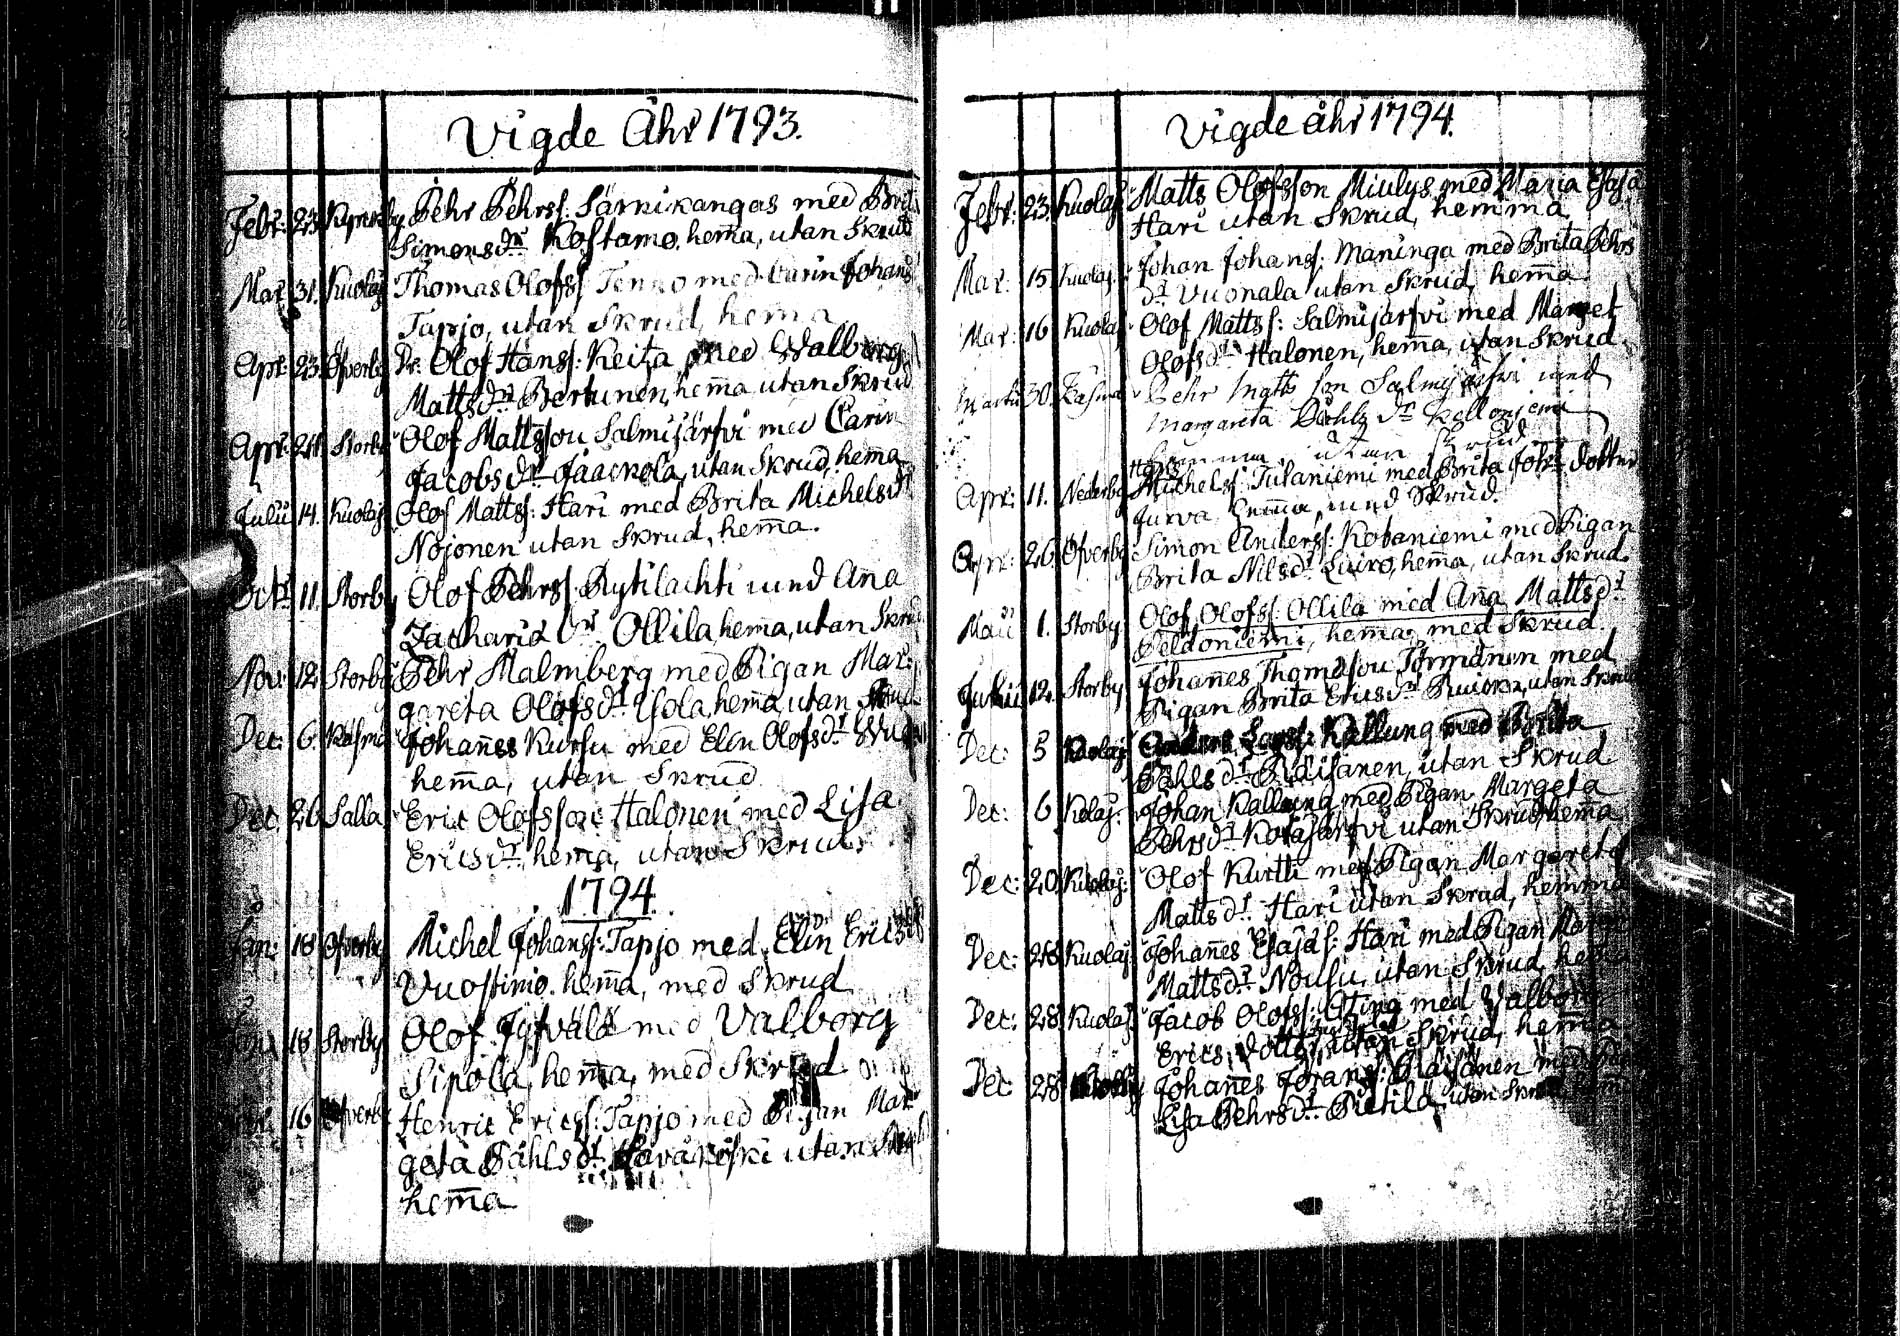 Vigde Åhr 1793.
Febr: 23. Kyrnsby Pehr Pehrss: Särkikangas med Brit
Simonsdr Kostamo, hem̄a, utan Skrud
Mar: 31. Kuolaj. Thomas Olofss: Tenno med Carin Johans
Tapjo, utan Skrud, hem̄a
Apr: 23. Öfverby Dr. Olof Hanss: Keita med Walborg
Mattsdr Pertunen, hem̄a, utan Skrud
Apr: 24. Storby Olof Mattsson Salmijärfvi med Carin
Jacobsdr Jaackola, utan Skrud, hem̄a
Julii 14. Kuolaj. Olof Mattss: Hari med Brita Michelsdr
Nojonen utan Skrud, hem̄a.
Octr 11. Storby Olof Pehrss: Rytilachti med An̄a
Zacharia dr Ollila hem̄a, utan Skrud
Nov: 12. Storby Pehr Malmberg med Pigan Mar:
gareta Olofsdr Ysola, hem̄a, utan Skrud
Dec: 6. Käsmä Johan̄es Kursu med Elin Olofsdr
hem̄a, utan Skrud
Dec: 26 Salla Eric Olofsson Halonen med Lisa
Ericsdr hem̄a, utan Skrud
1794.
Jan: 18 Öfverby Michel Johanss: Tapjo med Elin Erics
Vuostimo. hem̄a, med Skrud
18 Storby Olof Jyfvälä med Valborg
Sipola, hem̄a, med Skrud
16 Öfverby Henric Ericss: Tapjo med Pigan Mar
geta Påhlsdr utan Skrud
hem̄a
Vigde åhr 1794.
Febr: 23. Kuolaj. Matts Olofsson Miulus med Maria Esaja
Hari utan Skrud, hemma
Mar: 15. Kuolaj. Johan Johanss: Maninga med Brita Pehrs
dr Vuonala utan Skrud, hem̄a
Mar: 16 Kuolaj Olof Mattss: Salmijärfvi med Marget
Olofsdr Halonen, hem̄a, utan Skrud.
Martii 30. Käsmä Pehr Matts son Salmijärfvi med
Margareta Påhls dr Kelloniemi
hemma utan skrud
Hans
Apr: 11. Nederby Michelss: Tulaniemi med Brita Joh: dotter
Jurva hem̄a, med Skrud.
Apr: 26 Öfverby Simon Anderss: Kotaniemi med Pigan
Brita Nilsdr Luiro, hem̄a, utan Skrud.
Maii 1. Storby Olof Olofss: Ollila med An̄a Mattsdr
Peldoniemi, hem̄a, med Skrud.
Junii 12. Storby Johan̄es Thomasson med
Pigan Brita Ericsdr utan Skrud
Dec: 5 Kuolaj Anders Larss: Kallung med Brita
Påhlsdr Räisänen, utan Skrud
Dec: 6 Kolaj. Johan Kallung med Pigan Margeta
Pehrsdr Kotajärfvi utan Skrud, hem̄a
Dec: 20 Kuolaj: Olof Kurtti med Pigan Margareta
Mattsdr Hari utan Skrud, hemma
Dec: 28 Kuolaj. Johan̄es Esajas: Hari med Pigan
Mattsdr Nousu, utan Skrud,
Dec: 28. Kuolaj Jacob Olofss: Ating med Valborg
Erics dotter utan Skrud, hem̄a
Dec 28 Johan̄es Johans: Räisänen med
Lisa Pehrsdr Pietilä, utan Skrud